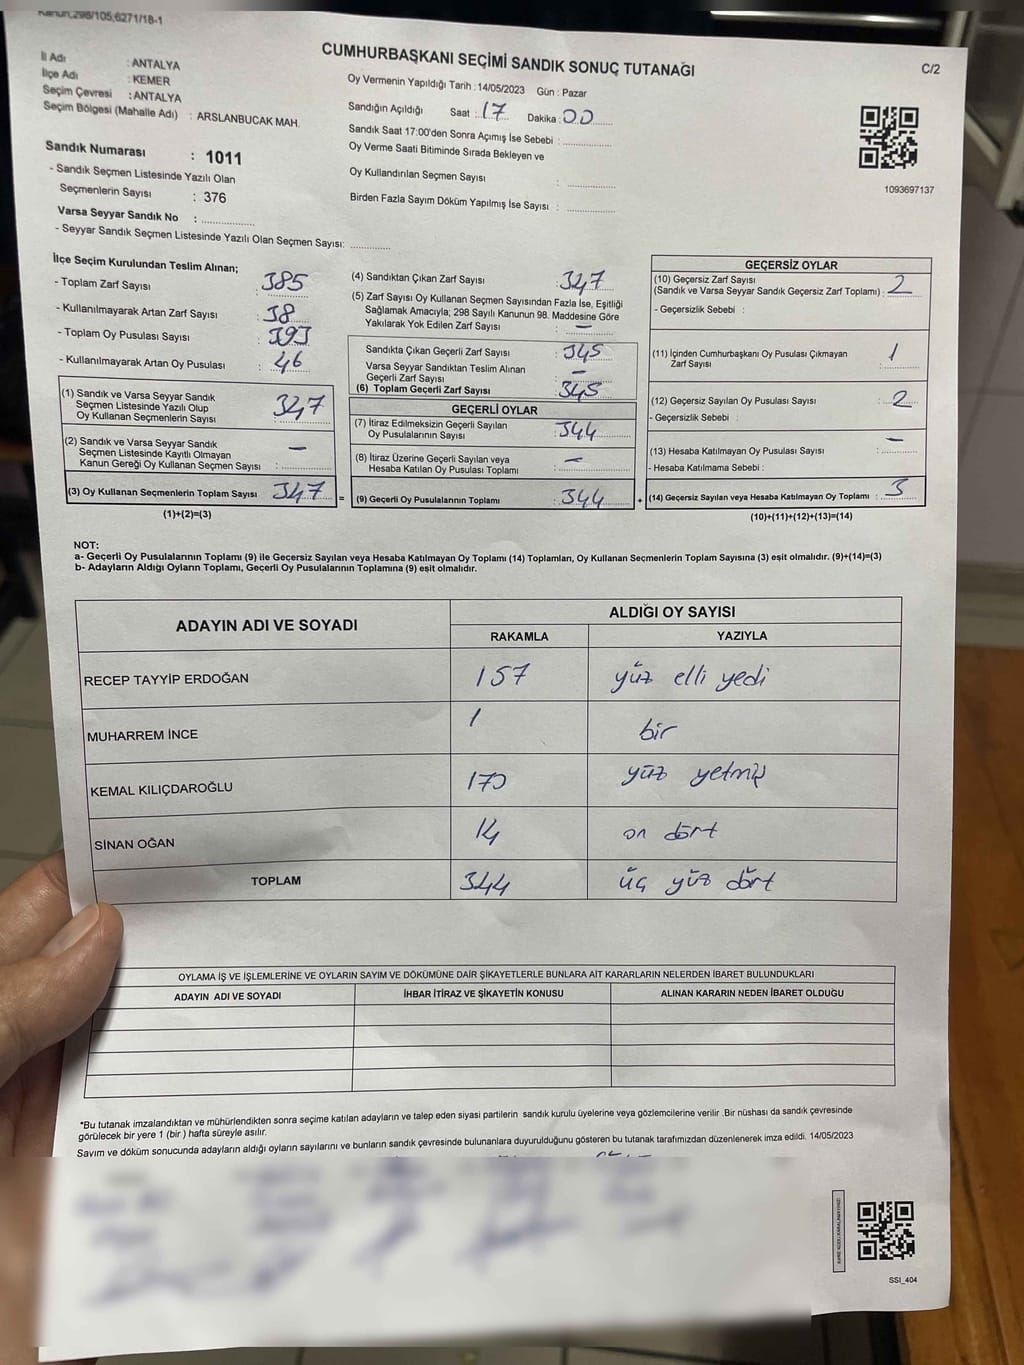 Kanun,298/105,6271/18-1
CUMHURBAŞKANI SEÇİMİ SANDIK SONUÇ TUTANAĞI
C/2
İl Adı : ANTALYA
İlçe Adı : KEMER
Seçim Çevresi : ANTALYA
Seçim Bölgesi (Mahalle Adı) : ARSLANBUCAK MAH.
Sandık Numarası : 1011
- Sandık Seçmen Listesinde Yazılı Olan
Seçmenlerin Sayısı : 376
Varsa Seyyar Sandık No :
- Seyyar Sandık Seçmen Listesinde Yazılı Olan Seçmen Sayısı:
Oy Vermenin Yapıldığı Tarih : 14/05/2023 Gün : Pazar
Sandığın Açıldığı Saat : 17 Dakika : 00
Sandık Saat 17:00'den Sonra Açımış İse Sebebi :
Oy Verme Saati Bitiminde Sırada Bekleyen ve
Oy Kullandırılan Seçmen Sayısı :
Birden Fazla Sayım Döküm Yapılmış İse Sayısı :
1093697137
İlçe Seçim Kurulundan Teslim Alınan;
- Toplam Zarf Sayısı : 385
- Kullanılmayarak Artan Zarf Sayısı : 38
- Toplam Oy Pusulası Sayısı : 393
- Kullanılmayarak Artan Oy Pusulası : 46
(1) Sandık ve Varsa Seyyar Sandık
Seçmen Listesinde Yazılı Olup
Oy Kullanan Seçmenlerin Sayısı 347
(2) Sandık ve Varsa Seyyar Sandık
Seçmen Listesinde Kayıtlı Olmayan
Kanun Gereği Oy Kullanan Seçmen Sayısı : —
(3) Oy Kullanan Seçmenlerin Toplam Sayısı 347
(1)+(2)=(3)
(4) Sandıktan Çıkan Zarf Sayısı : 347
(5) Zarf Sayısı Oy Kullanan Seçmen Sayısından Fazla İse, Eşitliği
Sağlamak Amacıyla; 298 Sayılı Kanunun 98. Maddesine Göre
Yakılarak Yok Edilen Zarf Sayısı : —
Sandıkta Çıkan Geçerli Zarf Sayısı : 345
Varsa Seyyar Sandıktan Teslim Alınan
Geçerli Zarf Sayısı : —
(6) Toplam Geçerli Zarf Sayısı : 345
GEÇERLİ OYLAR
(7) İtiraz Edilmeksizin Geçerli Sayılan
Oy Pusulalarının Sayısı : 344
(8) İtiraz Üzerine Geçerli Sayılan veya
Hesaba Katılan Oy Pusulası Toplamı : —
= (9) Geçerli Oy Pusulalarının Toplamı : 344
GEÇERSİZ OYLAR
(10) Geçersiz Zarf Sayısı
(Sandık ve Varsa Seyyar Sandık Geçersiz Zarf Toplamı) : 2
- Geçersizlik Sebebi :
(11) İçinden Cumhurbaşkanı Oy Pusulası Çıkmayan
Zarf Sayısı : 1
(12) Geçersiz Sayılan Oy Pusulası Sayısı : 2
- Geçersizlik Sebebi :
(13) Hesaba Katılmayan Oy Pusulası Sayısı : —
- Hesaba Katılmama Sebebi :
+ (14) Geçersiz Sayılan veya Hesaba Katılmayan Oy Toplamı : 3
(10)+(11)+(12)+(13)=(14)
NOT:
a- Geçerli Oy Pusulalarının Toplamı (9) ile Geçersiz Sayılan veya Hesaba Katılmayan Oy Toplamı (14) Toplamları, Oy Kullanan Secmenlerin Toplam Sayısına (3) esit olmalıdır. (9)+(14)=(3)
b- Adayların Aldığı Oyların Toplamı, Geçerli Oy Pusulalarının Toplamına (9) eşit olmalıdır.
ADAYIN ADI VE SOYADI ALDIĞI OY SAYISI
RAKAMLA YAZIYLA
RECEP TAYYİP ERDOĞAN 157 yüz elli yedi
MUHARREM İNCE 1 bir
KEMAL KILIÇDAROĞLU 170 yüz yetmiş
SİNAN OĞAN 14 on dört
TOPLAM 344 üç yüz dört
OYLAMA İŞ VE İŞLEMLERİNE VE OYLARIN SAYIM VE DÖKÜMÜNE DAİR ŞİKAYETLERLE BUNLARA AİT KARARLARIN NELERDEN İBARET BULUNDUKLARI
ADAYIN ADI VE SOYADI İHBAR İTİRAZ VE ŞİKAYETİN KONUSU ALINAN KARARIN NEDEN İBARET OLDUĞU
*Bu tutanak imzalandıktan ve mühürlendikten sonra seçime katılan adayların ve talep eden siyasi partilerin sandık kurulu üyelerine veya gözlemcilerine verilir .Bir nüshası da sandık çevresinde
görülecek bir yere 1 (bir ) hafta süreyle asılır.
Sayım ve döküm sonucunda adayların aldığı oyların sayılarını ve bunların sandık çevresinde bulunanlara duyurulduğunu gösteren bu tutanak tarafımızdan düzenlenerek imza edildi. 14/05/2023
SSI_404